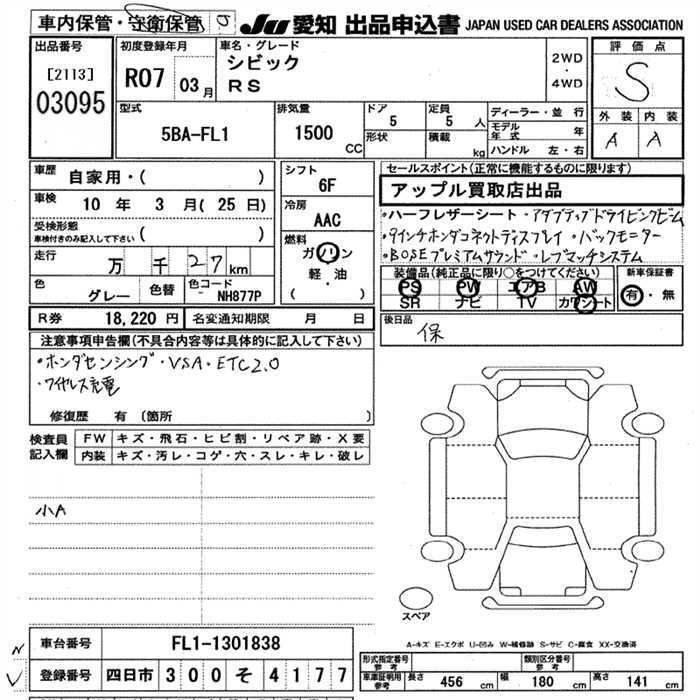 車内保管・守衛保管
JU 愛知 出品申込書 JAPAN USED CAR DEALERS ASSOCIATION
出品番号
[2113]
03095
初度登録年月
R07 03月
車名・グレード
シビック
RS
2WD
・
4WD
評価点
S
外装 内装
A A
型式
5BA-FL1
排気量
1500 CC
ドア
5
形状
定員
5 人
積載
kg
ディーラー・並行
モデル年式 年
ハンドル 左・右
車歴
自家用・( )
車検
10 年 3 月 ( 25 日)
受検形態
車検付きのみ記入して下さい ( )
走行
万 千 27 km
色
グレー
色替
色コード
NH877P
シフト
6F
冷房
AAC
燃料
ガソリン
軽・油
( )
R券 18,220 円 名変通知期限 月 日
セールスポイント(正常に機能するものに限ります)
アップル買取店出品
・ハーフレザーシート・アダプティブドライビングビーム
・9インチホンダコネクトディスプレイ・バックモニター
・BOSEプレミアムサウンド・レブマッチシステム
装備品(純正品に限り○をつけてください)
PS PW エアB AW
SR ナビ TV カワシート
新車保証書
有・無
後日品
保
注意事項申告欄(不具合内容等は具体的に記入して下さい)
・ホンダセンシング・VSA・ETC2.0
・ワイヤレス充電
修復歴 有 (箇所 )
検査員記入欄
FW キズ・飛石・ヒビ割・リペア跡・X要
内装 キズ・汚レ・コゲ・穴・スレ・キレ・破レ
小A
スペア
A-キズ E-エクボ U-凹み W-補修跡 S-サビ C-腐食 XX-交換済
車台番号 FL1-1301838
登録番号 四日市 300 そ 4177
形式指定番号 参考
類別区分番号 参考
車庫証明用 参考 長さ 456 cm 幅 180 cm 高さ 141 cm